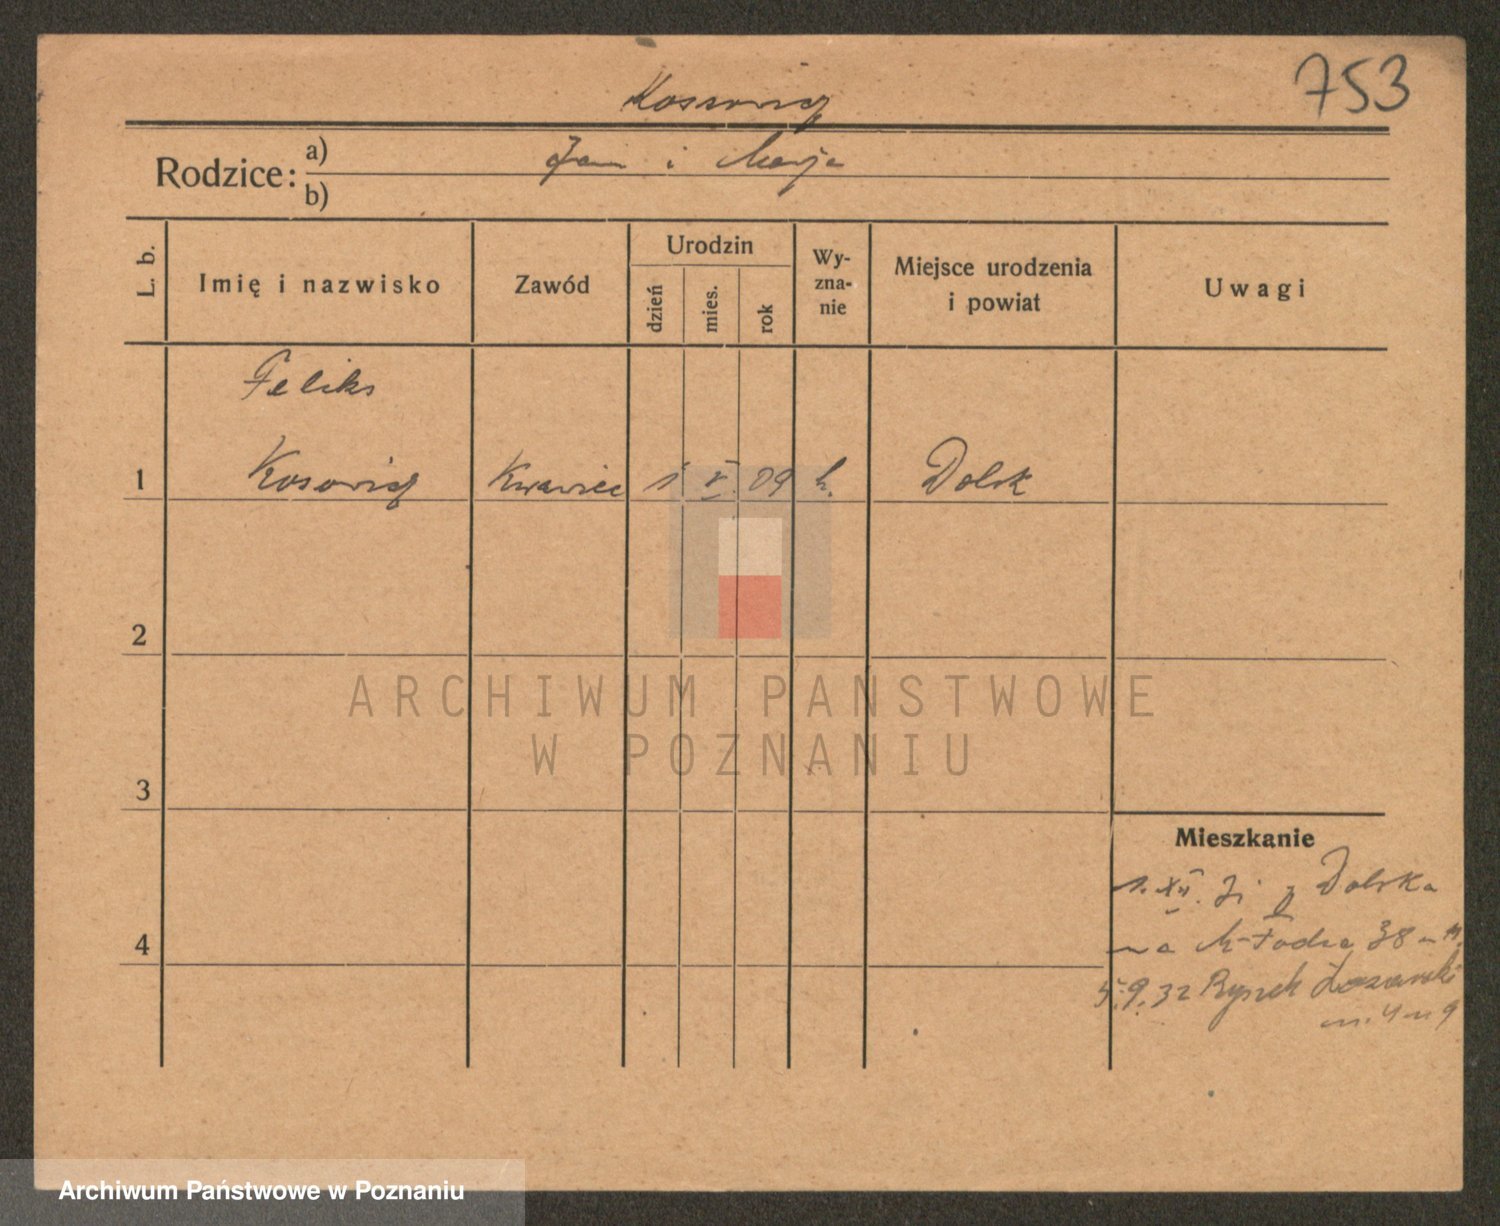 753
Kossowicz
Rodzice: a) Jan i Marja
b)
L. b.
Imię i nazwisko
Zawód
Urodzin
dzień
mies.
rok
Wy-
zna-
nie
Miejsce urodzenia
i powiat
Uwagi
Feliks
1 Kosowicz Krawiec 1 V 09 k. Dolsk
2
3
4
Mieszkanie
1. XII. 31 z Dolska
na 38 m
5.9.32 Rynek Łazarski
n. 4 m 9
ARCHIWUM PAŃSTWOWE
W POZNANIU
Archiwum Państwowe w Poznaniu